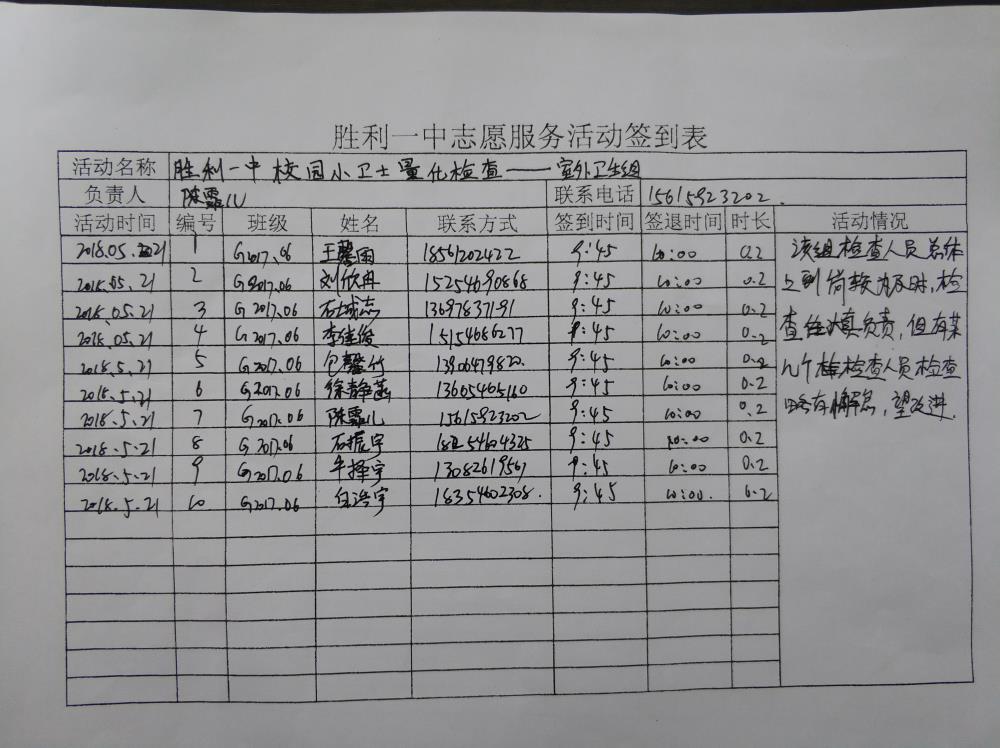 胜利一中志愿服务活动签到表
活动名称 胜利一中校园小卫士量化检查——室外卫生组
负责人 陈霏儿 联系电话 15615923202.
活动时间 编号 班级 姓名 联系方式 签到时间 签退时间 时长 活动情况
2018.05.21 1 G2017.06 王馨雨 18561202422 9:45 10:00 0.2 该组检查人员总体
2018.05.21 2 G2017.06 刘欣冉 15254690868 9:45 10:00 0.2 上到岗较为及时,检
2018.05.21 3 G2017.06 石城志 9:45 10:00 0.2 查住认真负责,但有某
2018.05.21 4 G2017.06 李佳俊 15154686277 9:45 10:00 0.2 几个检查人员检查
2018.5.21 5 G2017.06 包馨竹 13906479820. 9:45 10:00 0.2 略有懈怠,望改进.
2018.5.21 6 G2017.06 徐静菡 13605465160 9:45 10:00 0.2
2018.5.21 7 G2017.06 陈霏儿 15615923202 9:45 10:00 0.2
2018.5.21 8 G2017.06 石振宇 9:45 10:00 0.2
2018.5.21 9 G2017.06 9:45 10:00 0.2
2018.5.21 10 G2017.06 白浩宇 18354602308. 9:45 10:00. 0.2